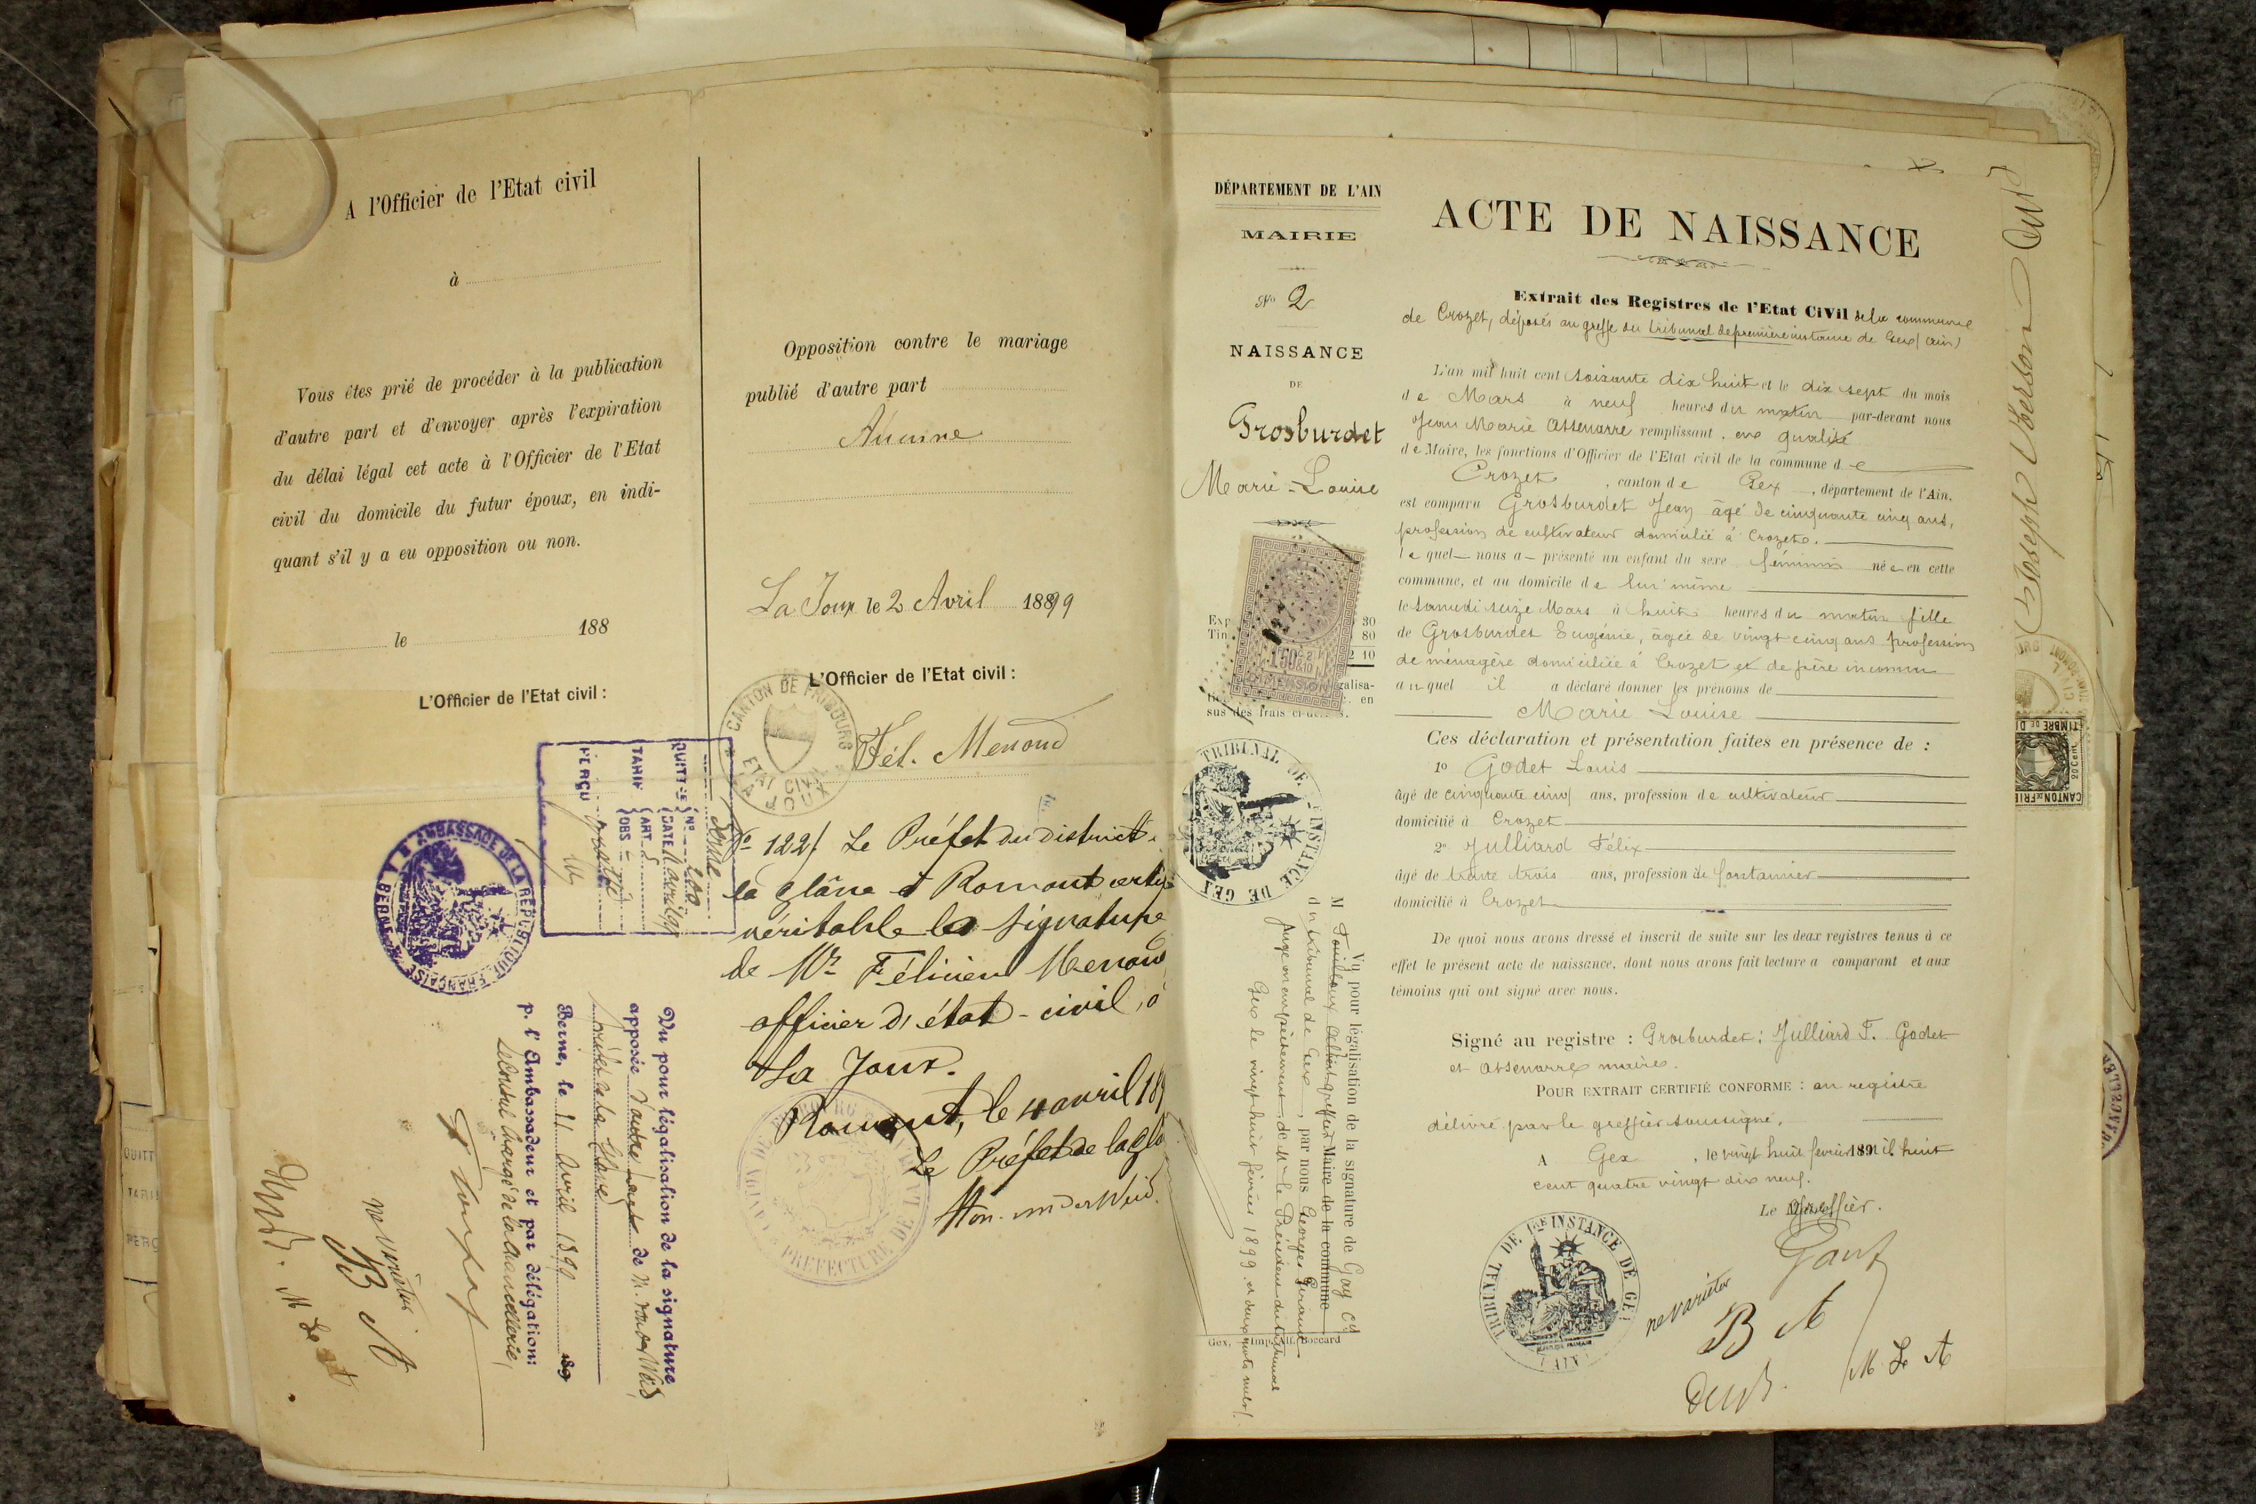 A l'Officier de l'Etat civil
à
Vous êtes prié de procéder à la publication
d'autre part et d'envoyer après l'expiration
du délai légal cet acte à l'Officier de l'Etat
civil du domicile du futur époux, en indi-
quant s'il y a eu opposition ou non.
le 188
L'Officier de l'Etat civil :
Opposition contre le mariage
publié d'autre part
Aucune
La Joux le 2 Avril 1899
L'Officier de l'Etat civil :
Fél. Menoud
CANTON DE FRIBOURG
ETAT CIVIL
LA JOUX
No 122/ Le Préfet du district
la Glâne à Romont certifie
véritable la signature
de Mr Félicien Menoud
officier d'état-civil, à
La Joux.
Romont, le 4 avril 189
Le Préfet de la Gla
QUITT CE No 200
DATE 11 avril 99
TARIF ART
OBS
PERÇU gratis
AMBASSADE DE LA REPUBLIQUE FRANÇAISE
Vu pour légalisation de la signature
apposée d'autre part de M. Vonderweid,
préfet de la Glâne
Berne, le 11 Avril 1899 189
p. l'Ambassadeur et par délégation:
Le Consul chargé de la chancellerie,
ne varietur
B A
M Le A
DÉPARTEMENT DE L'AIN
MAIRIE
No 2
NAISSANCE
DE
Grosburdet
Marie-Louise
Exp. 30
Tim 80
2 10
galisa-
c. en
sus des frais ci-dessus.
DIMENSION
TRIBUNAL DE 1re INSTANCE DE GEX
Vu pour légalisation de la signature de Gay
M
du tribunal de Gex, par nous Georges Giraud
juge en empêchement de Mr le Président du tribunal
Gex le vingt huit février 1899
Maire de la commune
Gex, Imp.
ACTE DE NAISSANCE
Extrait des Registres de l'Etat CiVil de la commune
de Crozet, déposés au greffe du tribunal de première instance de Gex (ain)
L'an mil huit cent soixante dix huit et le dix sept du mois
de Mars à neuf heures du matin par-devant nous
Jean Marie Assenarre remplissant en qualité
de Maire, les fonctions d'Officier de l'Etat civil de la commune de
Crozet, canton de Gex, département de l'Ain,
est comparu Grosburdet Jean âgé de cinquante cinq ans,
profession de cultivateur domicilié à Crozet.
lequel nous a présenté un enfant du sexe féminin née en cette
commune, et au domicile de lui même
le samedi seize Mars à huit heures du matin fille
de Grosburdet Eugénie, âgée de vingt cinq ans profession
de ménagère domiciliée à Crozet et de père inconnu
auquel il a déclaré donner les prénoms de
Marie Louise
Ces déclaration et présentation faites en présence de :
1o Godet Louis
âgé de cinquante cinq ans, profession de cultivateur
domicilié à Crozet
2o Julliard Félix
âgé de trente trois ans, profession de fontainier
domicilié à Crozet
De quoi nous avons dressé et inscrit de suite sur les deux registres tenus à ce
effet le présent acte de naissance, dont nous avons fait lecture a comparant et aux
témoins qui ont signé avec nous.
Signé au registre : Grosburdet; Julliard F. Godet
et Assenarre maire.
POUR EXTRAIT CERTIFIÉ CONFORME : au registre
délivré par le greffier soussigné.
A Gex, le vingt huit février 189 mil huit
cent quatre vingt dix neuf.
Le Greffier.
TRIBUNAL DE 1re INSTANCE DE GEX
AIN
ne varietur
B A
M. Le A
Joseph Oberson
TIMBRE DE DI
20 Cent.
CANTON DE FRIB
QUITT
TARIF
PERÇ